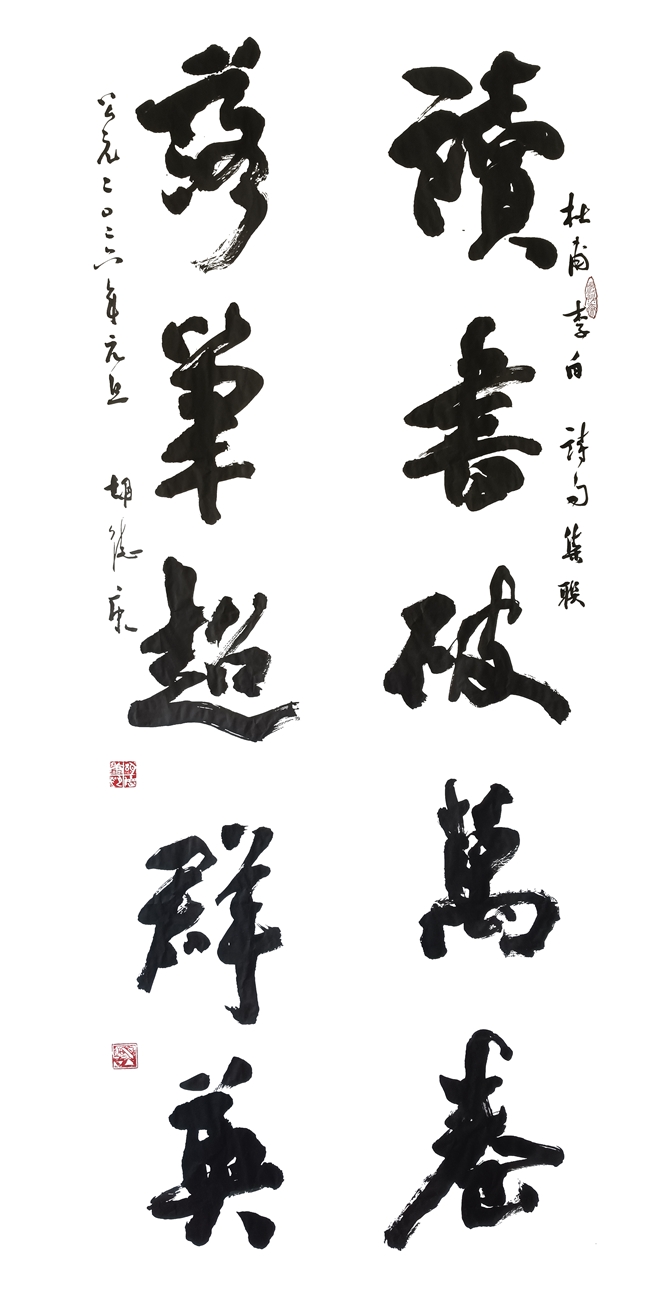 杜甫 李白 詩句集联
讀書破萬卷
落筆超群英
公元二〇二六年元旦 胡德康